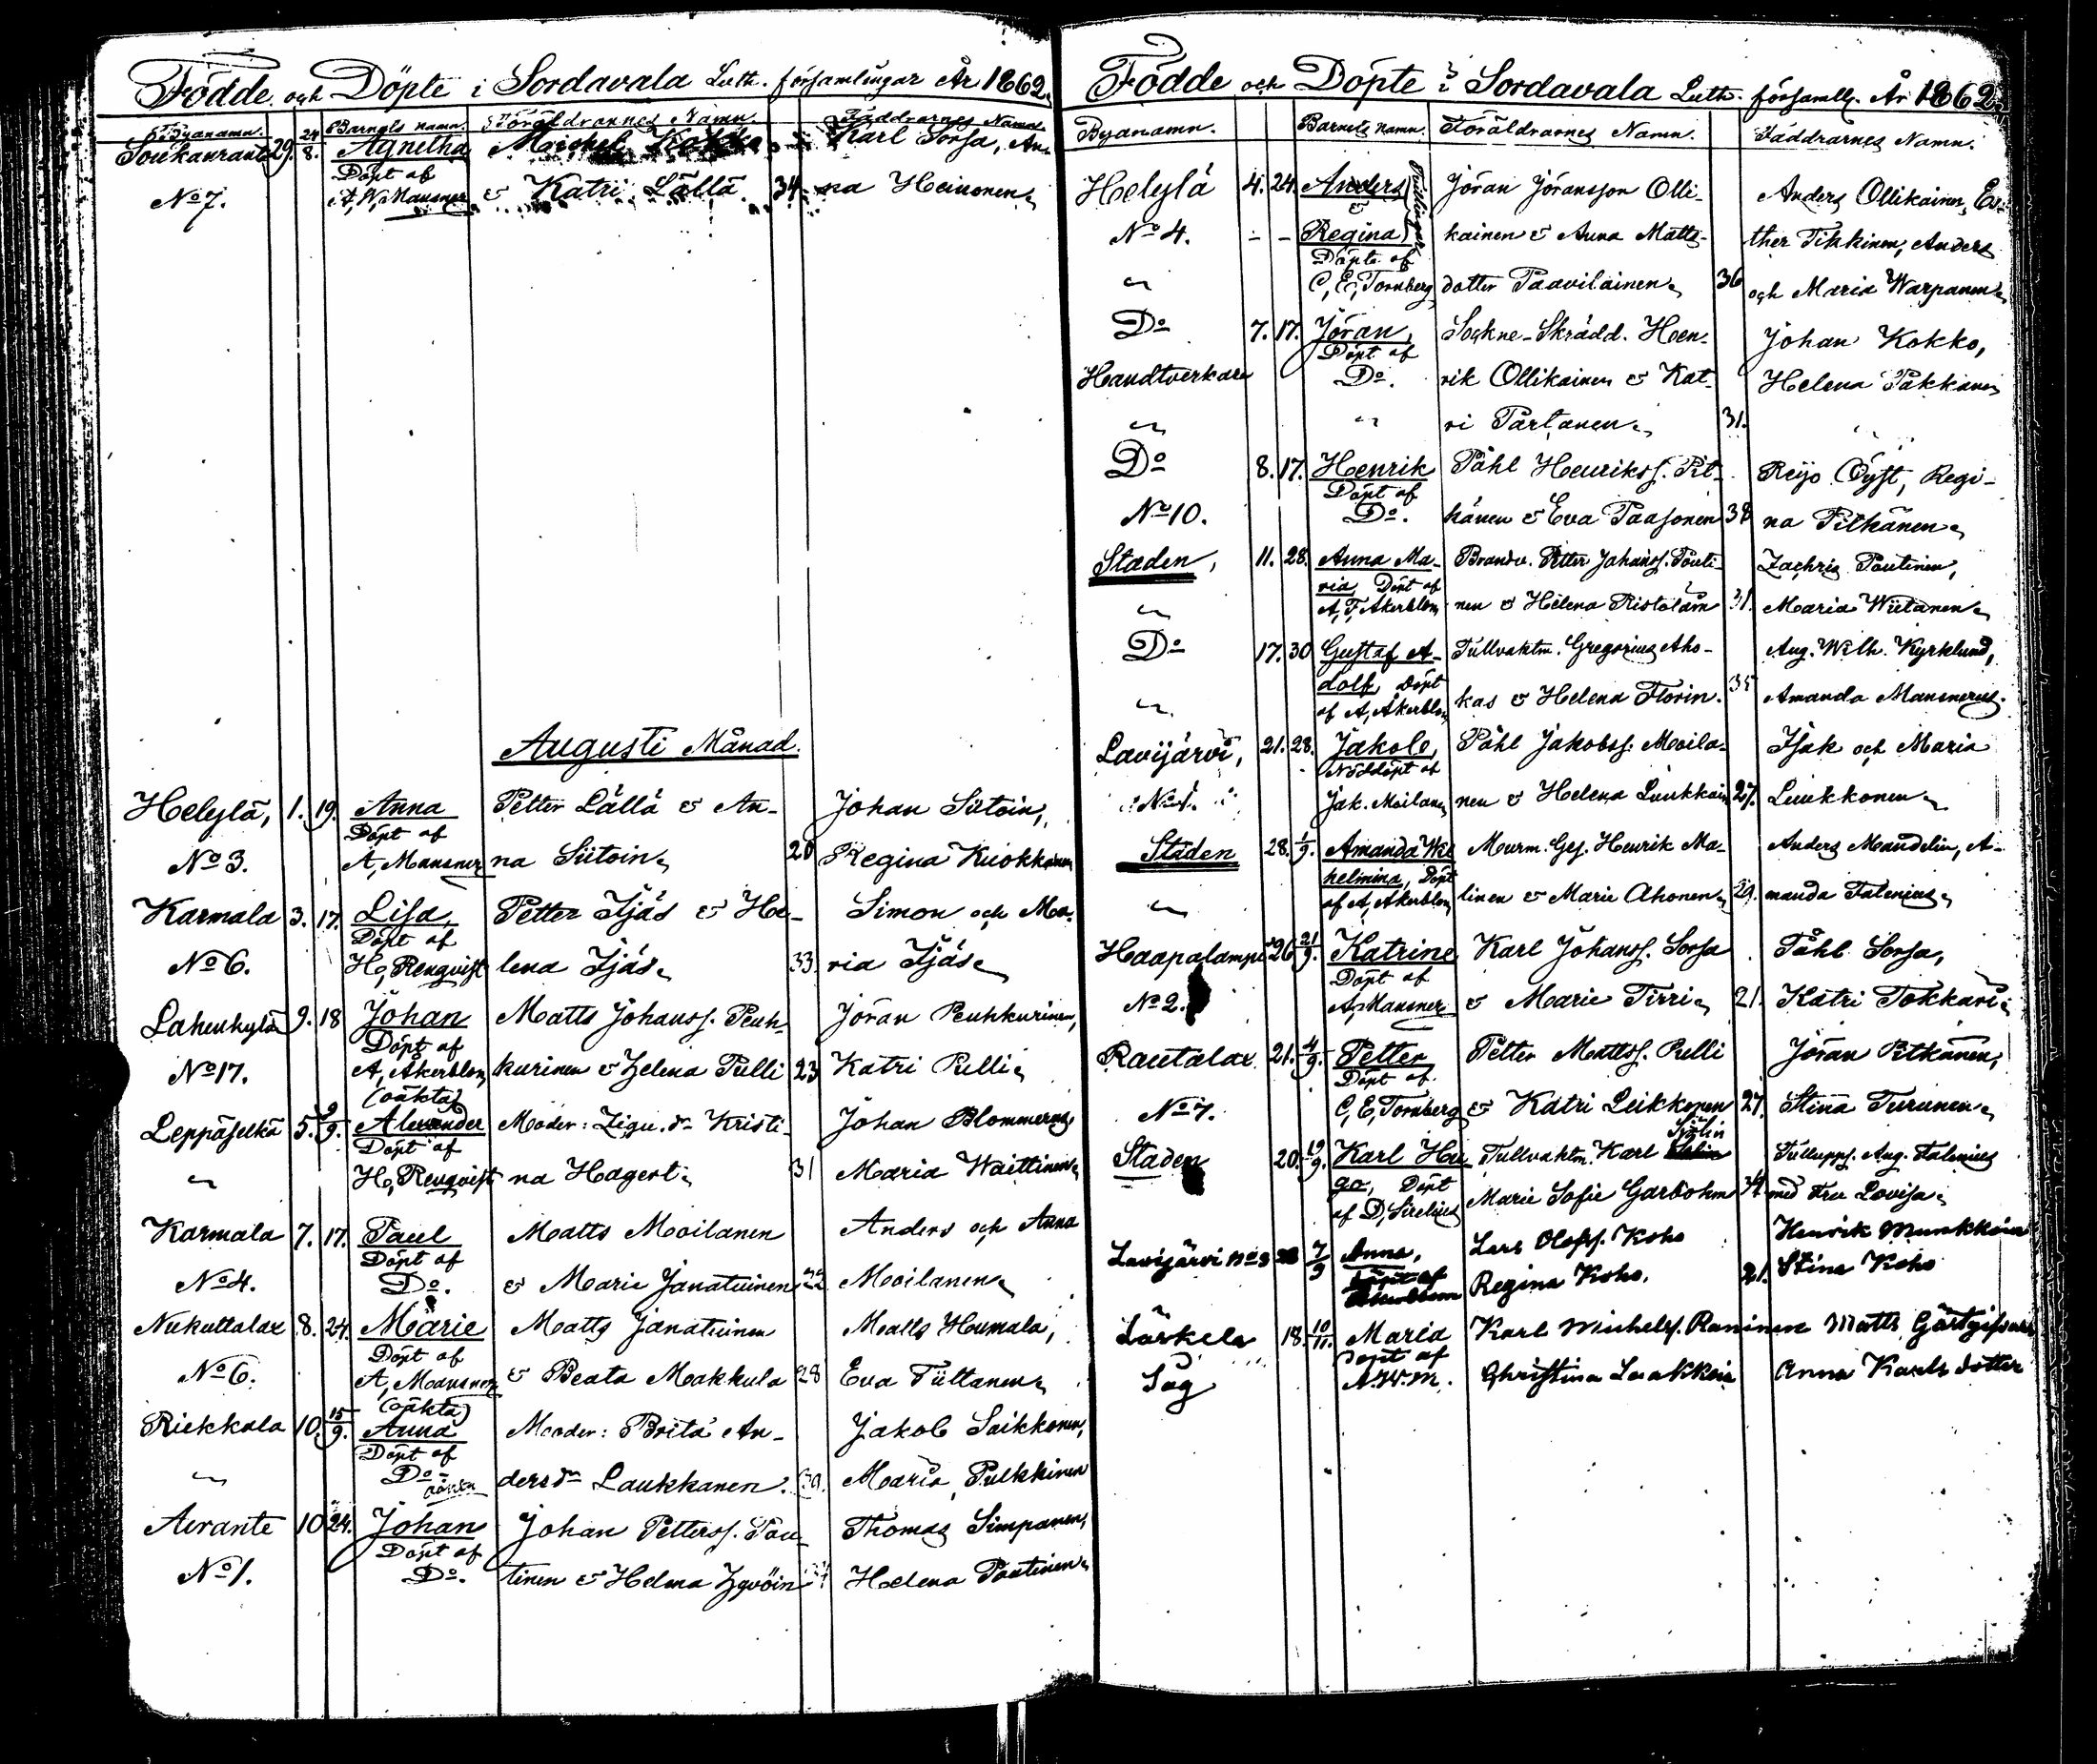 Födde och Döpte i Sordavala Luth. församlingar År 1862.
Byanamn. Barnets namn. Föräldrarnes Namn. Faddrarnes Namn.
29. 24/8. Agnetha Michel Kokko Karl Sorsa, An-
Döpt af
No 7. A, W, Mansner & Katri Lällä 34 na Heinonen
Augusti Månad.
Helylä, 1. 19. Anna Petter Lällä & An- Johan Siitoin,
Döpt af
No 3. A, Mansner na Siitoin 20 Regina Kuokkanen
Karmala 3. 17. Lisa, Petter Ijäs & He- Simon och Ma-
Döpt af
No 6. H, Renqvist lena Ijäs 33 ria Ijäs
Lahenkylä 9. 18 Johan Matts Johanss. Peuh- Jöran Peuhkurinen,
Döpt af
No 17. A, Åkerblom kurinen & Helena Pulli 23 Katri Pulli
(oäkta)
Leppäselkä 5. 2/9. Alexander Moder: Kristi- Johan Blommerus,
Döpt af
" H, Renqvist na Hagert 31 Maria Waittinen
Karmala 7. 17. Paul Matts Moilanen Anders och Anna
Döpt af
No 4. Do. & Marie Janatuinen 22 Moilanen
Nukuttalax 8. 24. Marie Matts Janatuinen Matts Humala,
Döpt af
No 6. A, Mansner & Beata Makkula 28 Eva Tiiltanen
(oäkta)
Riekkala 10. 15/9. Anna Moder: Brita An- Jakob Saikkonen,
Döpt af
" Do dersdr Laukkanen. Maria Pulkkinen
Avrante 10 24. Johan Johan Petterss. Pou- Thomas Simpanen,
Döpt af
No 1. Do. tinen & Helena Helena Poutinen
Födde och Döpte i Sordavala Luth. församllg. År 1862.
Byanamn. Barnets namn. Föräldrarnes Namn. Faddrarnes Namn.
Helylä 4. 24. Anders Jöran Jöransson Olli- Anders Ollikainen, Es-
& Tvillingar
No 4. - - Regina kainen & Anna Matts- ther Tikkinen, Anders
Döpte af
" C, E, Tornberg dotter Paavilainen 36 och Maria Warpanen
Do 7. 17. Jöran, Sockne-Skrädd. Hen- Johan Kokko,
Döpt af
Handtverkare Do. rik Ollikainen & Kat- Helena Pakkanen
" " ri Partanen 31.
Do 8. 17. Henrik Påhl Henrikss. Pit- Reijo Öyst, Regi-
Döpt af
No 10. Do. känen & Eva Paasonen 38 na Pitkänen
Staden, 11. 28. Anna Ma- Brandv. Petter Johanss. Pouti- Zachris Poutinen,
ria, Döpt af
" A, F, Åkerblom nen & Helena Ristolain 31. Maria Wiitanen
Do 17. 30 Gustaf A- Tullvaktm. Gregorius Aho- Aug. Wilh. Kyrklund,
dolf, Döpt
" af A, Åkerblom kas & Helena Florin. 35 Amanda Mansnerus.
Lavijärvi, 21. 28. Jakob, Påhl Jakobss. Moila- Isak och Maria
Nöddöpt af
No 1. Jak. Moilanen nen & Helena Luukkain 27. Luukkonen
Staden 28. 1/9. Amanda Wil- Murm. Ges. Henrik Ma- Anders Maudelin, A-
helmina, Döpt
" af A, Åkerblom linen & Marie Ahonen 29. manda Falenius
Haapalampi 26 21/9. Katrine Karl Johanss. Sorsa Påhl Sorsa,
Döpt af
No 2. A, Mansner & Marie Tirri 21. Katri Tokkari
Rautalax 21. 4/9. Petter Petter Mattss. Pulli Jöran Pitkänen,
Döpt af
No 7. C, E, Tornberg & Katri Leikkonen 27. Stina Turunen
Staden 20. 19/9. Karl Hu- Tullvaktm. Karl Aug. Falenius
go, Döpt
af D, Sirelius Marie Sofie Garbohm 34 med Fru Lovisa
Lavijärvi No 3 7/9 Anna, Lars Olofss. Koho Henrik Munkkoin
Döpt af
Åkerblom Regina Koho. 21. Stina Koho
Lärkelä 18. 10/11. Maria Karl Michelss. Raninen Matts
Döpt af
Såg A.W.M. Christina Laakkoin Anna Karls dotter